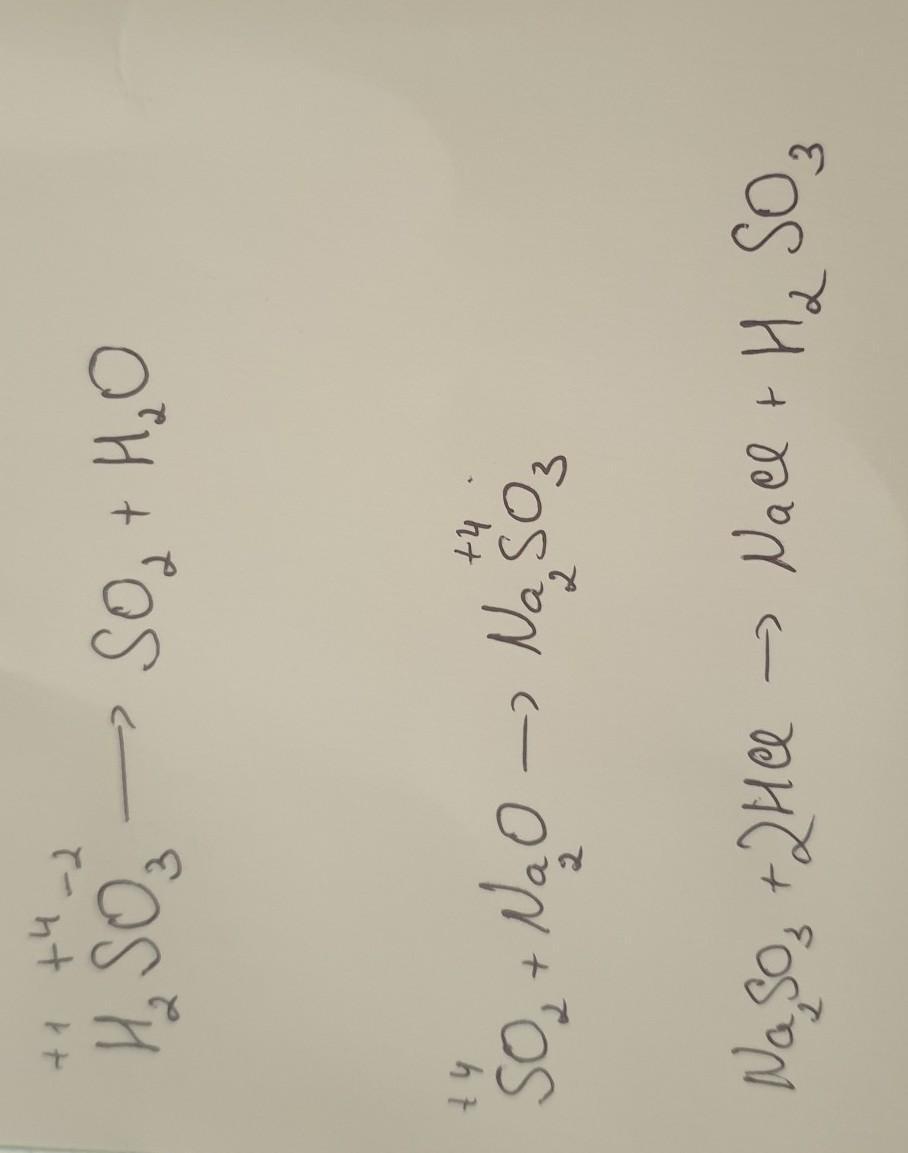 +1 +4 -2
H₂SO₃ ⟶ SO₂ + H₂O
+4 +4
SO₂ + Na₂O → Na₂SO₃
Na₂SO₃ + 2HCl → NaCl + H₂SO₃